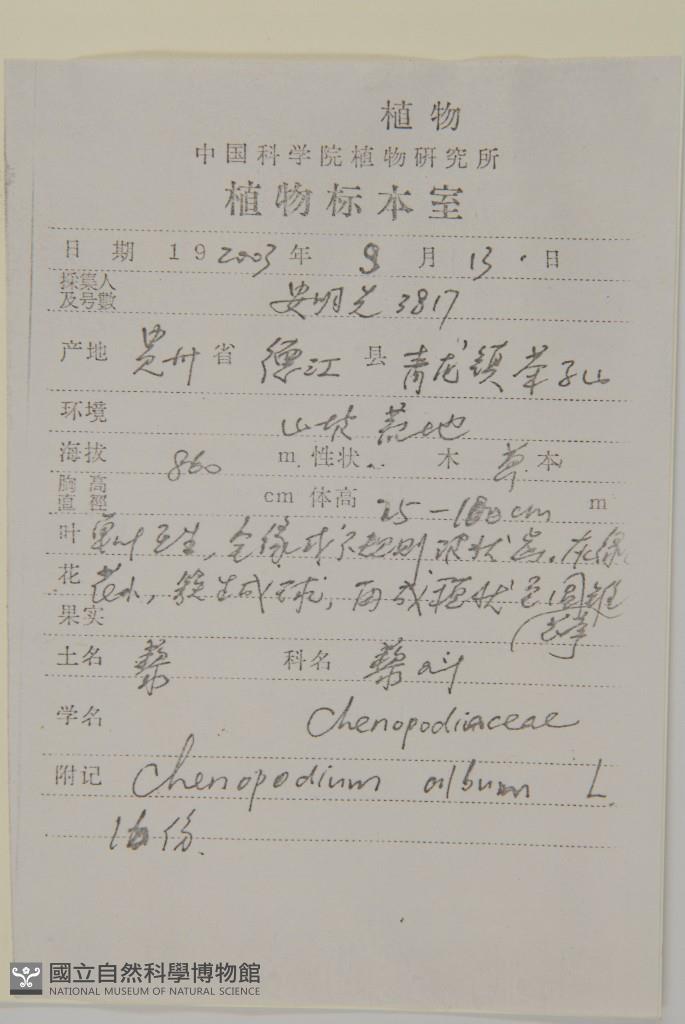 植物
中国科学院植物研究所
植物标本室
日期 19 2003 年 9 月 13 日
採集人及号數 安明先 3817
产地 贵州 省 德江 县 青龙镇 茶子山
环境 山坡 荒地
海拔 860 m 性状 木 草 本
胸高直徑 cm 体高 25-100cm m
叶 单叶互生, 全缘或不规则波状齿. 灰绿
花 花小, 簇生成球, 再成穗状至圆锥
果实 花序
土名 藜 科名 藜科
学名 Chenopodiaceae
附记 Chenopodium album L.
16份.
國立自然科學博物館
NATIONAL MUSEUM OF NATURAL SCIENCE